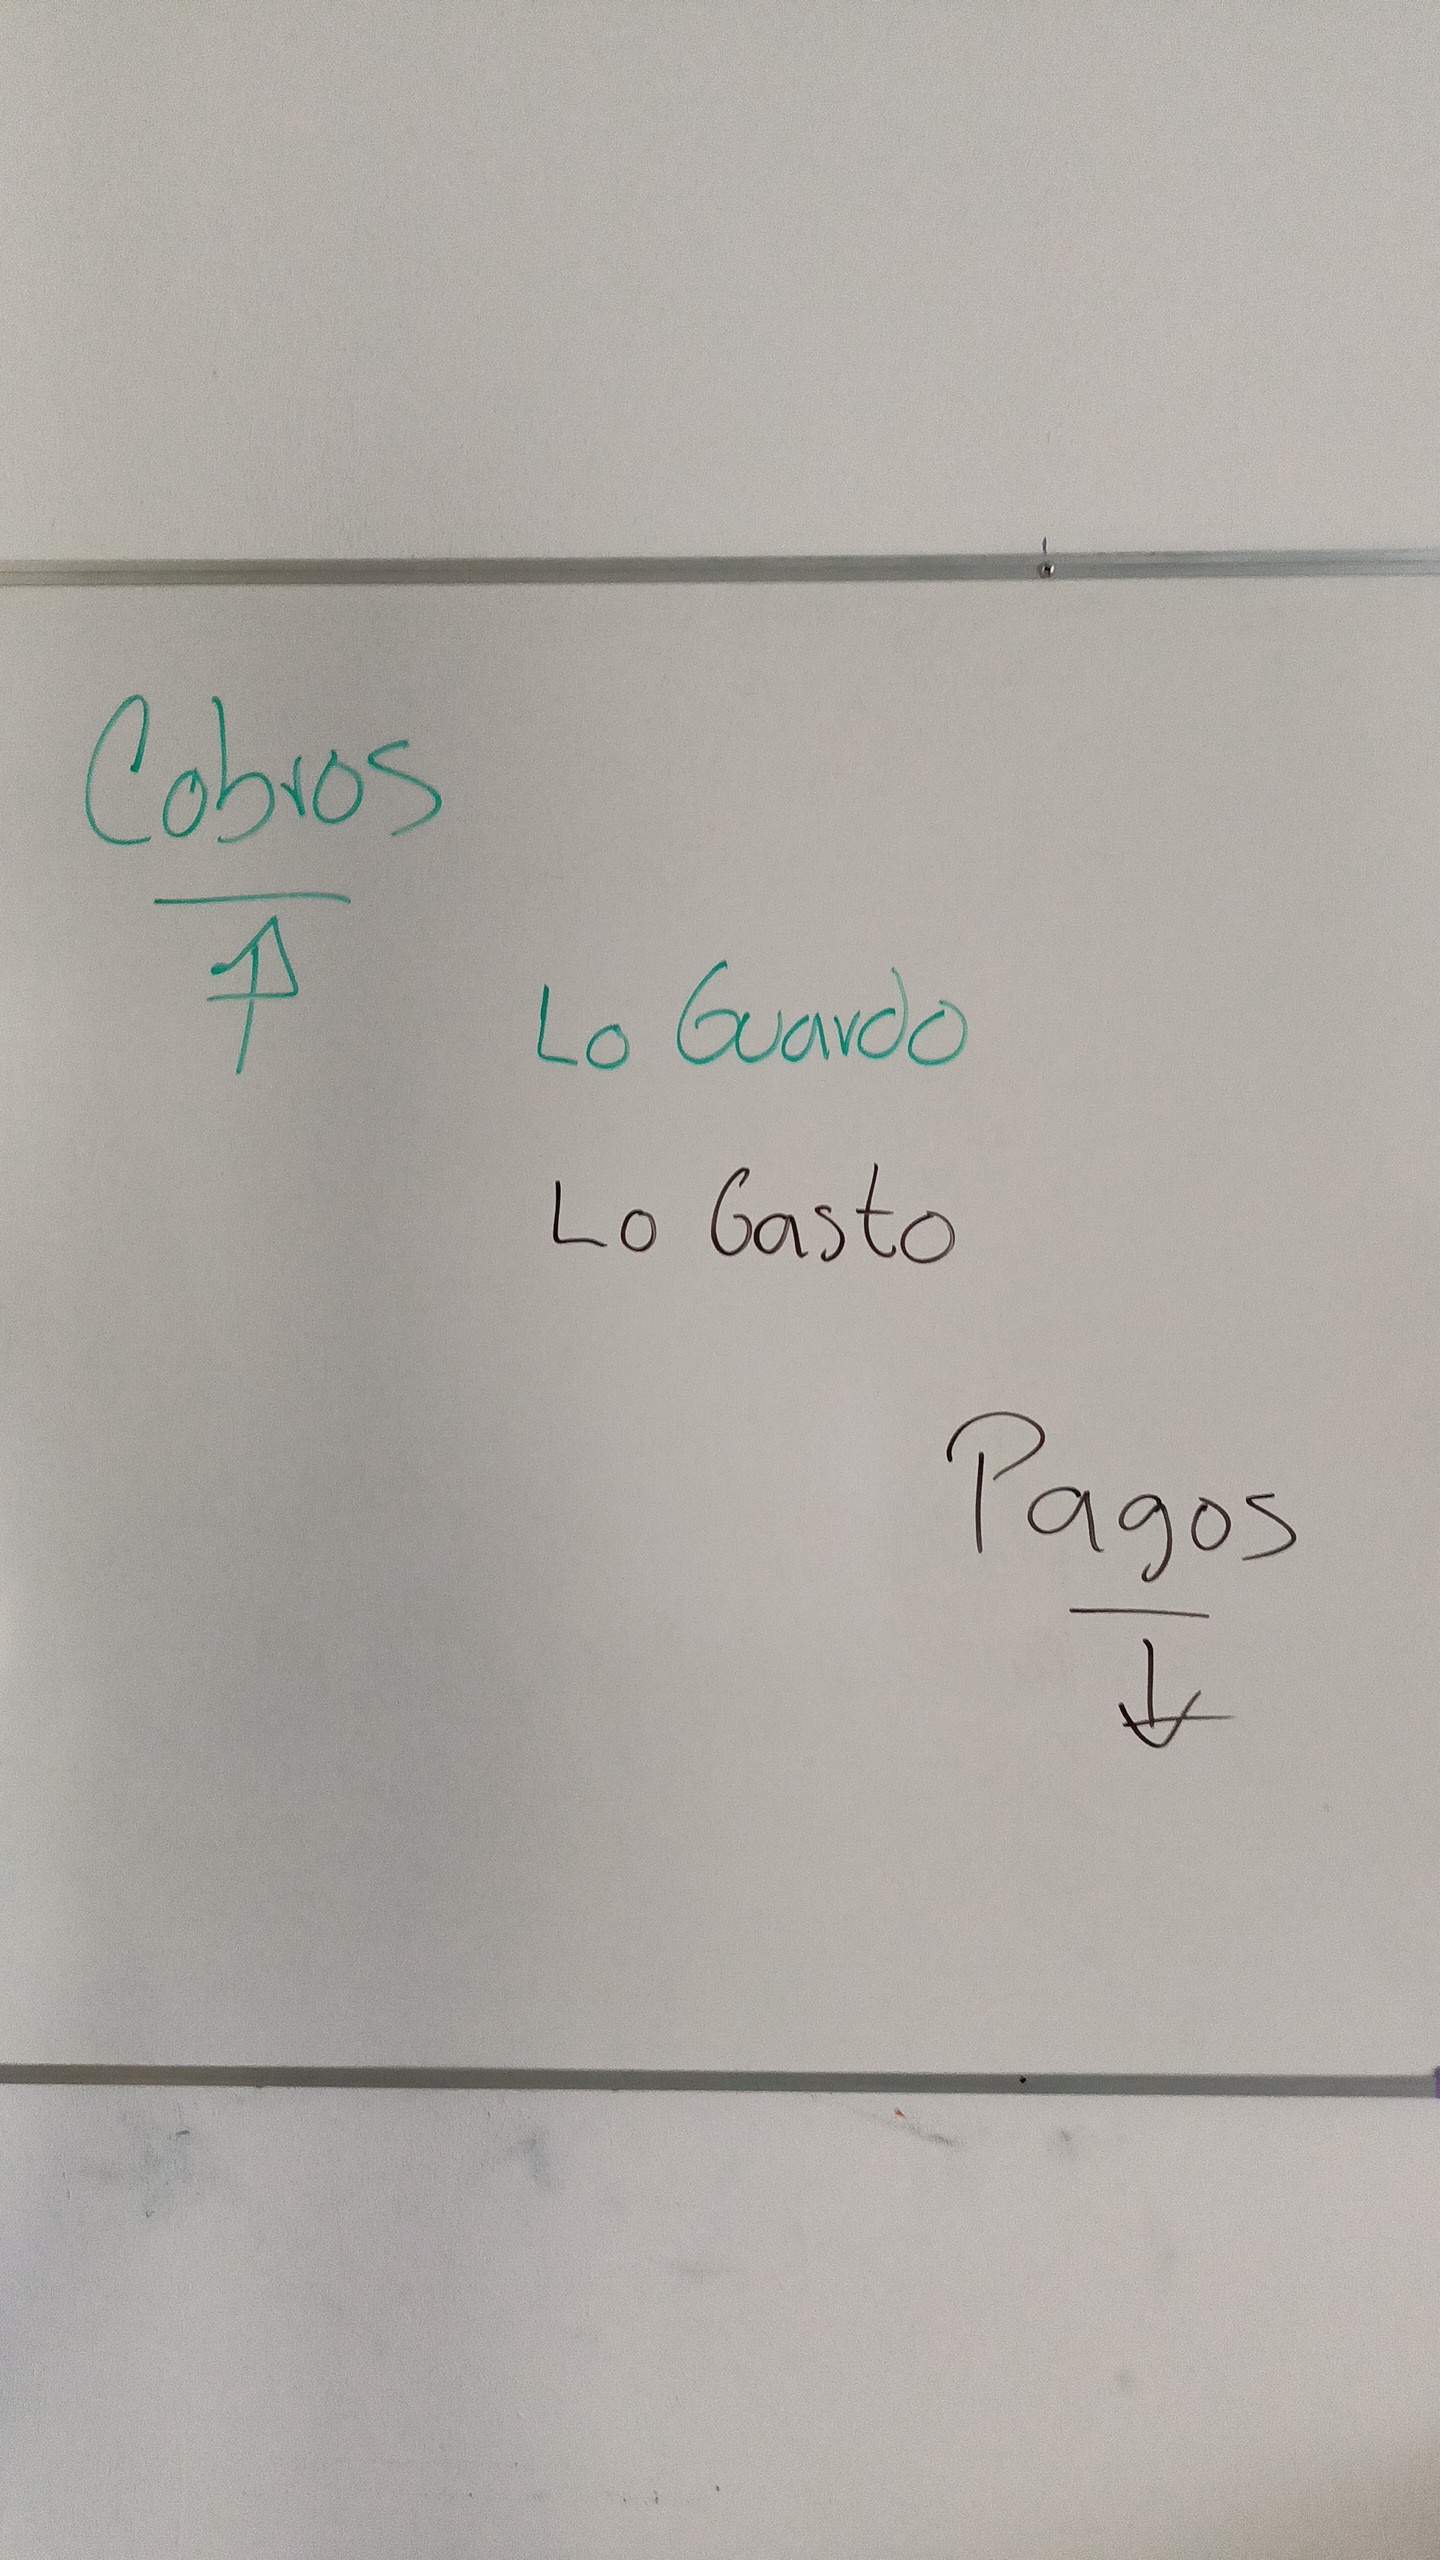 Cobros
Lo Guardo
Lo Gasto
Pagos